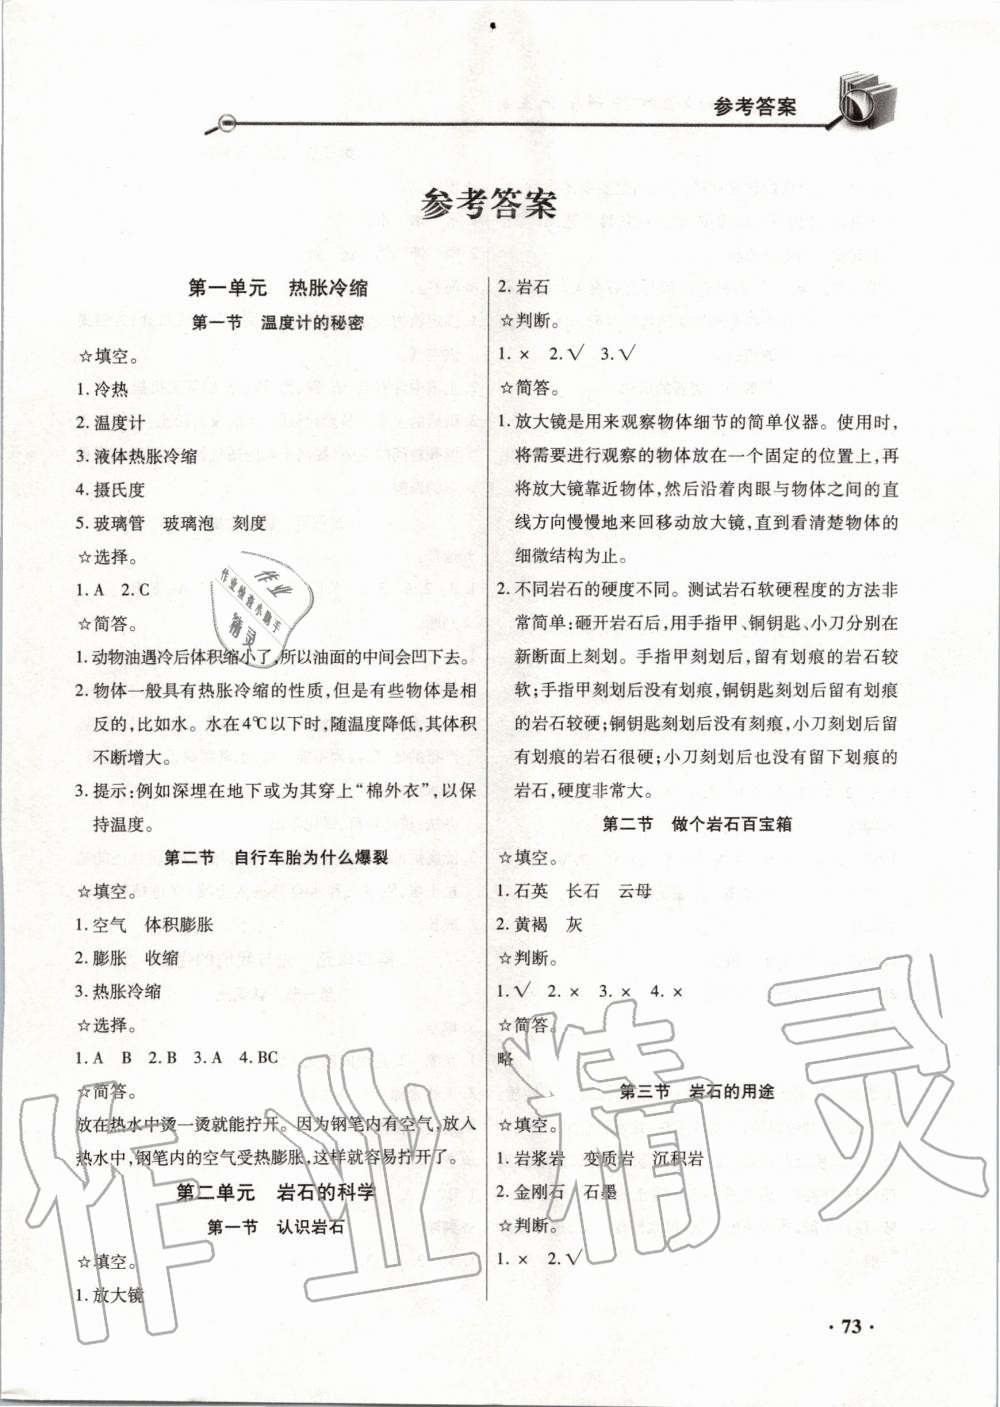 参考答案
参考答案
第一单元 热胀冷缩
第一节 温度计的秘密
☆填空。
1.冷热
2.温度计
3.液体热胀冷缩
4.摄氏度
5.玻璃管 玻璃泡 刻度
☆选择。
1.A 2.C
☆简答。
1.动物油遇冷后体积缩小了,所以油面的中间会凹下去。
2.物体一般具有热胀冷缩的性质,但是有些物体是相
反的,比如水。水在4℃以下时,随温度降低,其体积
不断增大。
3.提示:例如深埋在地下或为其穿上“棉外衣”,以保
持温度。
第二节 自行车胎为什么爆裂
☆填空。
1.空气 体积膨胀
2.膨胀 收缩
3.热胀冷缩
☆选择。
1.A B 2.B 3.A 4.BC
☆简答。
放在热水中烫一烫就能拧开。因为钢笔内有空气,放入
热水中,钢笔内的空气受热膨胀,这样就容易拧开了。
第二单元 岩石的科学
第一节 认识岩石
☆填空。
1.放大镜
2.岩石
☆判断。
1.× 2.√ 3.√
☆简答。
1.放大镜是用来观察物体细节的简单仪器。使用时,
将需要进行观察的物体放在一个固定的位置上,再
将放大镜靠近物体,然后沿着肉眼与物体之间的直
线方向慢慢地来回移动放大镜,直到看清楚物体的
细微结构为止。
2.不同岩石的硬度不同。测试岩石软硬程度的方法非
常简单:砸开岩石后,用手指甲、铜钥匙、小刀分别在
新断面上刻划。手指甲刻划后,留有划痕的岩石较
软;手指甲刻划后没有划痕,铜钥匙刻划后留有划痕
的岩石较硬;铜钥匙刻划后没有刻痕,小刀刻划后留
有划痕的岩石很硬;小刀刻划后也没有留下划痕的
岩石,硬度非常大。
第二节 做个岩石百宝箱
☆填空。
1.石英 长石 云母
2.黄褐 灰
☆判断。
1.√ 2.× 3.× 4.×
☆简答。
略
第三节 岩石的用途
☆填空。
1.岩浆岩 变质岩 沉积岩
2.金刚石 石墨
☆判断。
1.× 2.√
·73·
作业
作业检查小助手
精灵
作业精灵